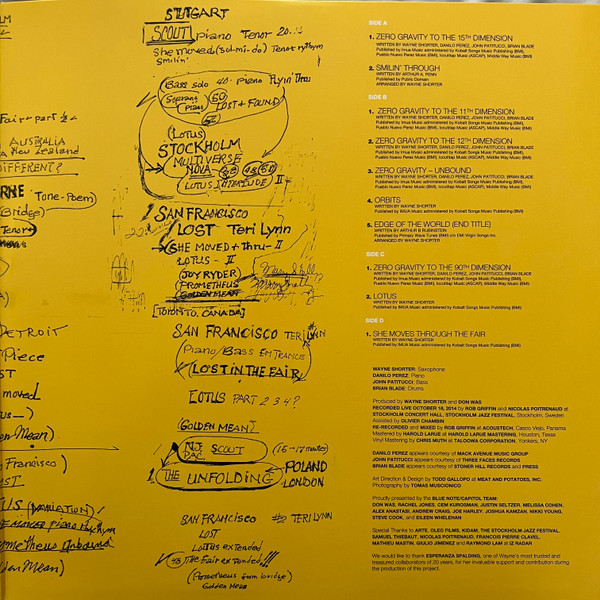 LM
Fair - part
AUSTRALIA
New Zealand
DIFFERENT?
RNE Tone-Poem
Bridge)
Tenor
DETROIT
Piece
ST
moved
us_)
en Mean)
Francisco)
ST
TUS (VARIATION)
metheus Unbound
den Mean)
STUTGART
SCOUT piano Tenor 20
she moved (sol-mi-do) Tenor rythym
Smilin'
Bass solo piano Thru
Soprano
Piano
LOST & FOUND
(LOTUS)
STOCKHOLM
MULTIVERSE
NOVA
LOTUS INTERLUDE II
SAN FRANCISCO
LOST Teri Lynn
SHE MOVED + thru - II
LOTUS - II
(GUY RYDER)
PROMETHEUS
GOLDEN MEAN
[TORONTO, CANADA]
SAN FRANCISCO TERI LYNN
Piano/Bass ENTRANCE
(LOST IN THE FAIR)
LOTUS PART 2 3 4?
(GOLDEN MEAN)
N.J. PAC. SCOUT (15-17 minutes)
THE UNFOLDING
POLAND
LONDON
SAN FRANCISCO #2 TERI LYNN
LOST
Lotus extended
The Fair extended!!!
(Prometheus from bridge)
Golden Mean
SIDE A
1. ZERO GRAVITY TO THE 15TH DIMENSION
WRITTEN BY WAYNE SHORTER, DANILO PEREZ, JOHN PATITUCCI, BRIAN BLADE
Published by Imua Music administered by Kobalt Songs Music Publishing (BMI),
Pueblo Nuevo Perez Music (BMI), Iccutitap Music (ASCAP), Middle Way Music (BMI)
2. SMILIN' THROUGH
WRITTEN BY ARTHUR A. PENN
Published by Public Domain
ARRANGED BY WAYNE SHORTER
SIDE B
1. ZERO GRAVITY TO THE 11TH DIMENSION
WRITTEN BY WAYNE SHORTER, DANILO PEREZ, JOHN PATITUCCI, BRIAN BLADE
Published by Imua Music administered by Kobalt Songs Music Publishing (BMI),
Pueblo Nuevo Perez Music (BMI), Iccutitap Music (ASCAP), Middle Way Music (BMI)
2. ZERO GRAVITY TO THE 12TH DIMENSION
WRITTEN BY WAYNE SHORTER, DANILO PEREZ, JOHN PATITUCCI, BRIAN BLADE
Published by Imua Music administered by Kobalt Songs Music Publishing (BMI),
Pueblo Nuevo Perez Music (BMI), Iccutitap Music (ASCAP), Middle Way Music (BMI)
3. ZERO GRAVITY – UNBOUND
WRITTEN BY WAYNE SHORTER, DANILO PEREZ, JOHN PATITUCCI, BRIAN BLADE
Published by Imua Music administered by Kobalt Songs Music Publishing (BMI),
Pueblo Nuevo Perez Music (BMI), Iccutitap Music (ASCAP), Middle Way Music (BMI)
4. ORBITS
WRITTEN BY WAYNE SHORTER
Published by IMUA Music administered by Kobalt Songs Music Publishing (BMI)
5. EDGE OF THE WORLD (END TITLE)
WRITTEN BY ARTHUR B RUBINSTEIN
Published by Primary Wave Tunes (BMI) c/o EMI Virgin Songs Inc.
ARRANGED BY WAYNE SHORTER
SIDE C
1. ZERO GRAVITY TO THE 90TH DIMENSION
WRITTEN BY WAYNE SHORTER, DANILO PEREZ, JOHN PATITUCCI, BRIAN BLADE
Published by Imua Music administered by Kobalt Songs Music Publishing (BMI),
Pueblo Nuevo Perez Music (BMI), Iccutitap Music (ASCAP), Middle Way Music (BMI)
2. LOTUS
WRITTEN BY WAYNE SHORTER
Published by IMUA Music administered by Kobalt Songs Music Publishing (BMI)
SIDE D
1. SHE MOVES THROUGH THE FAIR
WRITTEN BY WAYNE SHORTER
Published by IMUA Music administered by Kobalt Songs Music Publishing (BMI)
WAYNE SHORTER: Saxophone
DANILO PEREZ: Piano
JOHN PATITUCCI: Bass
BRIAN BLADE: Drums
Produced by WAYNE SHORTER and DON WAS
RECORDED LIVE OCTOBER 18, 2014 by ROB GRIFFIN and NICOLAS POITRENAUD at
STOCKHOLM CONCERT HALL, STOCKHOLM JAZZ FESTIVAL, Stockholm, Sweden
Assisted by OLIVER CHAMBIN
RE-RECORDED and MIXED by ROB GRIFFIN at ACOUSTECH, Casco Viejo, Panama
Mastered by HAROLD LARUE at HAROLD LARUE MASTERING, Houston, Texas
Vinyl Mastering by CHRIS MUTH at TALOOWA CORPORATION, Yonkers, NY
DANILO PEREZ appears courtesy of MACK AVENUE MUSIC GROUP
JOHN PATITUCCI appears courtesy of THREE FACES RECORDS
BRIAN BLADE appears courtesy of STONER HILL RECORDS and PRESS
Art Direction & Design by TODD GALLOPO at MEAT AND POTATOES, INC.
Photography by TOMAS MUSCIONICO
Proudly presented by the BLUE NOTE/CAPITOL TEAM:
DON WAS, RACHEL JONES, CEM KUROSMAN, JUSTIN SELTZER, MELISSA COHEN,
ALEX ANASTASI, ANDREW CRAIG, JOE HARLEY, JOSHUA KAMZAN, NIKKI YOUNG,
STEVE COOK, and EILEEN WHELEHAN
Special Thanks to ARTE, OLEO FILMS, KIDAM, THE STOCKHOLM JAZZ FESTIVAL,
SAMUEL THIEBAUT, NICOLAS POITRENAUD, FRANCOIS PIERRE CLAVEL,
MATHIEU MASTIN, GIULIO JIMENEZ and RAYMOND LAM at IZ RADAR
We would like to thank ESPERANZA SPALDING, one of Wayne's most trusted and
treasured collaborators of 20 years, for her invaluable support and contribution during
the production of this project.